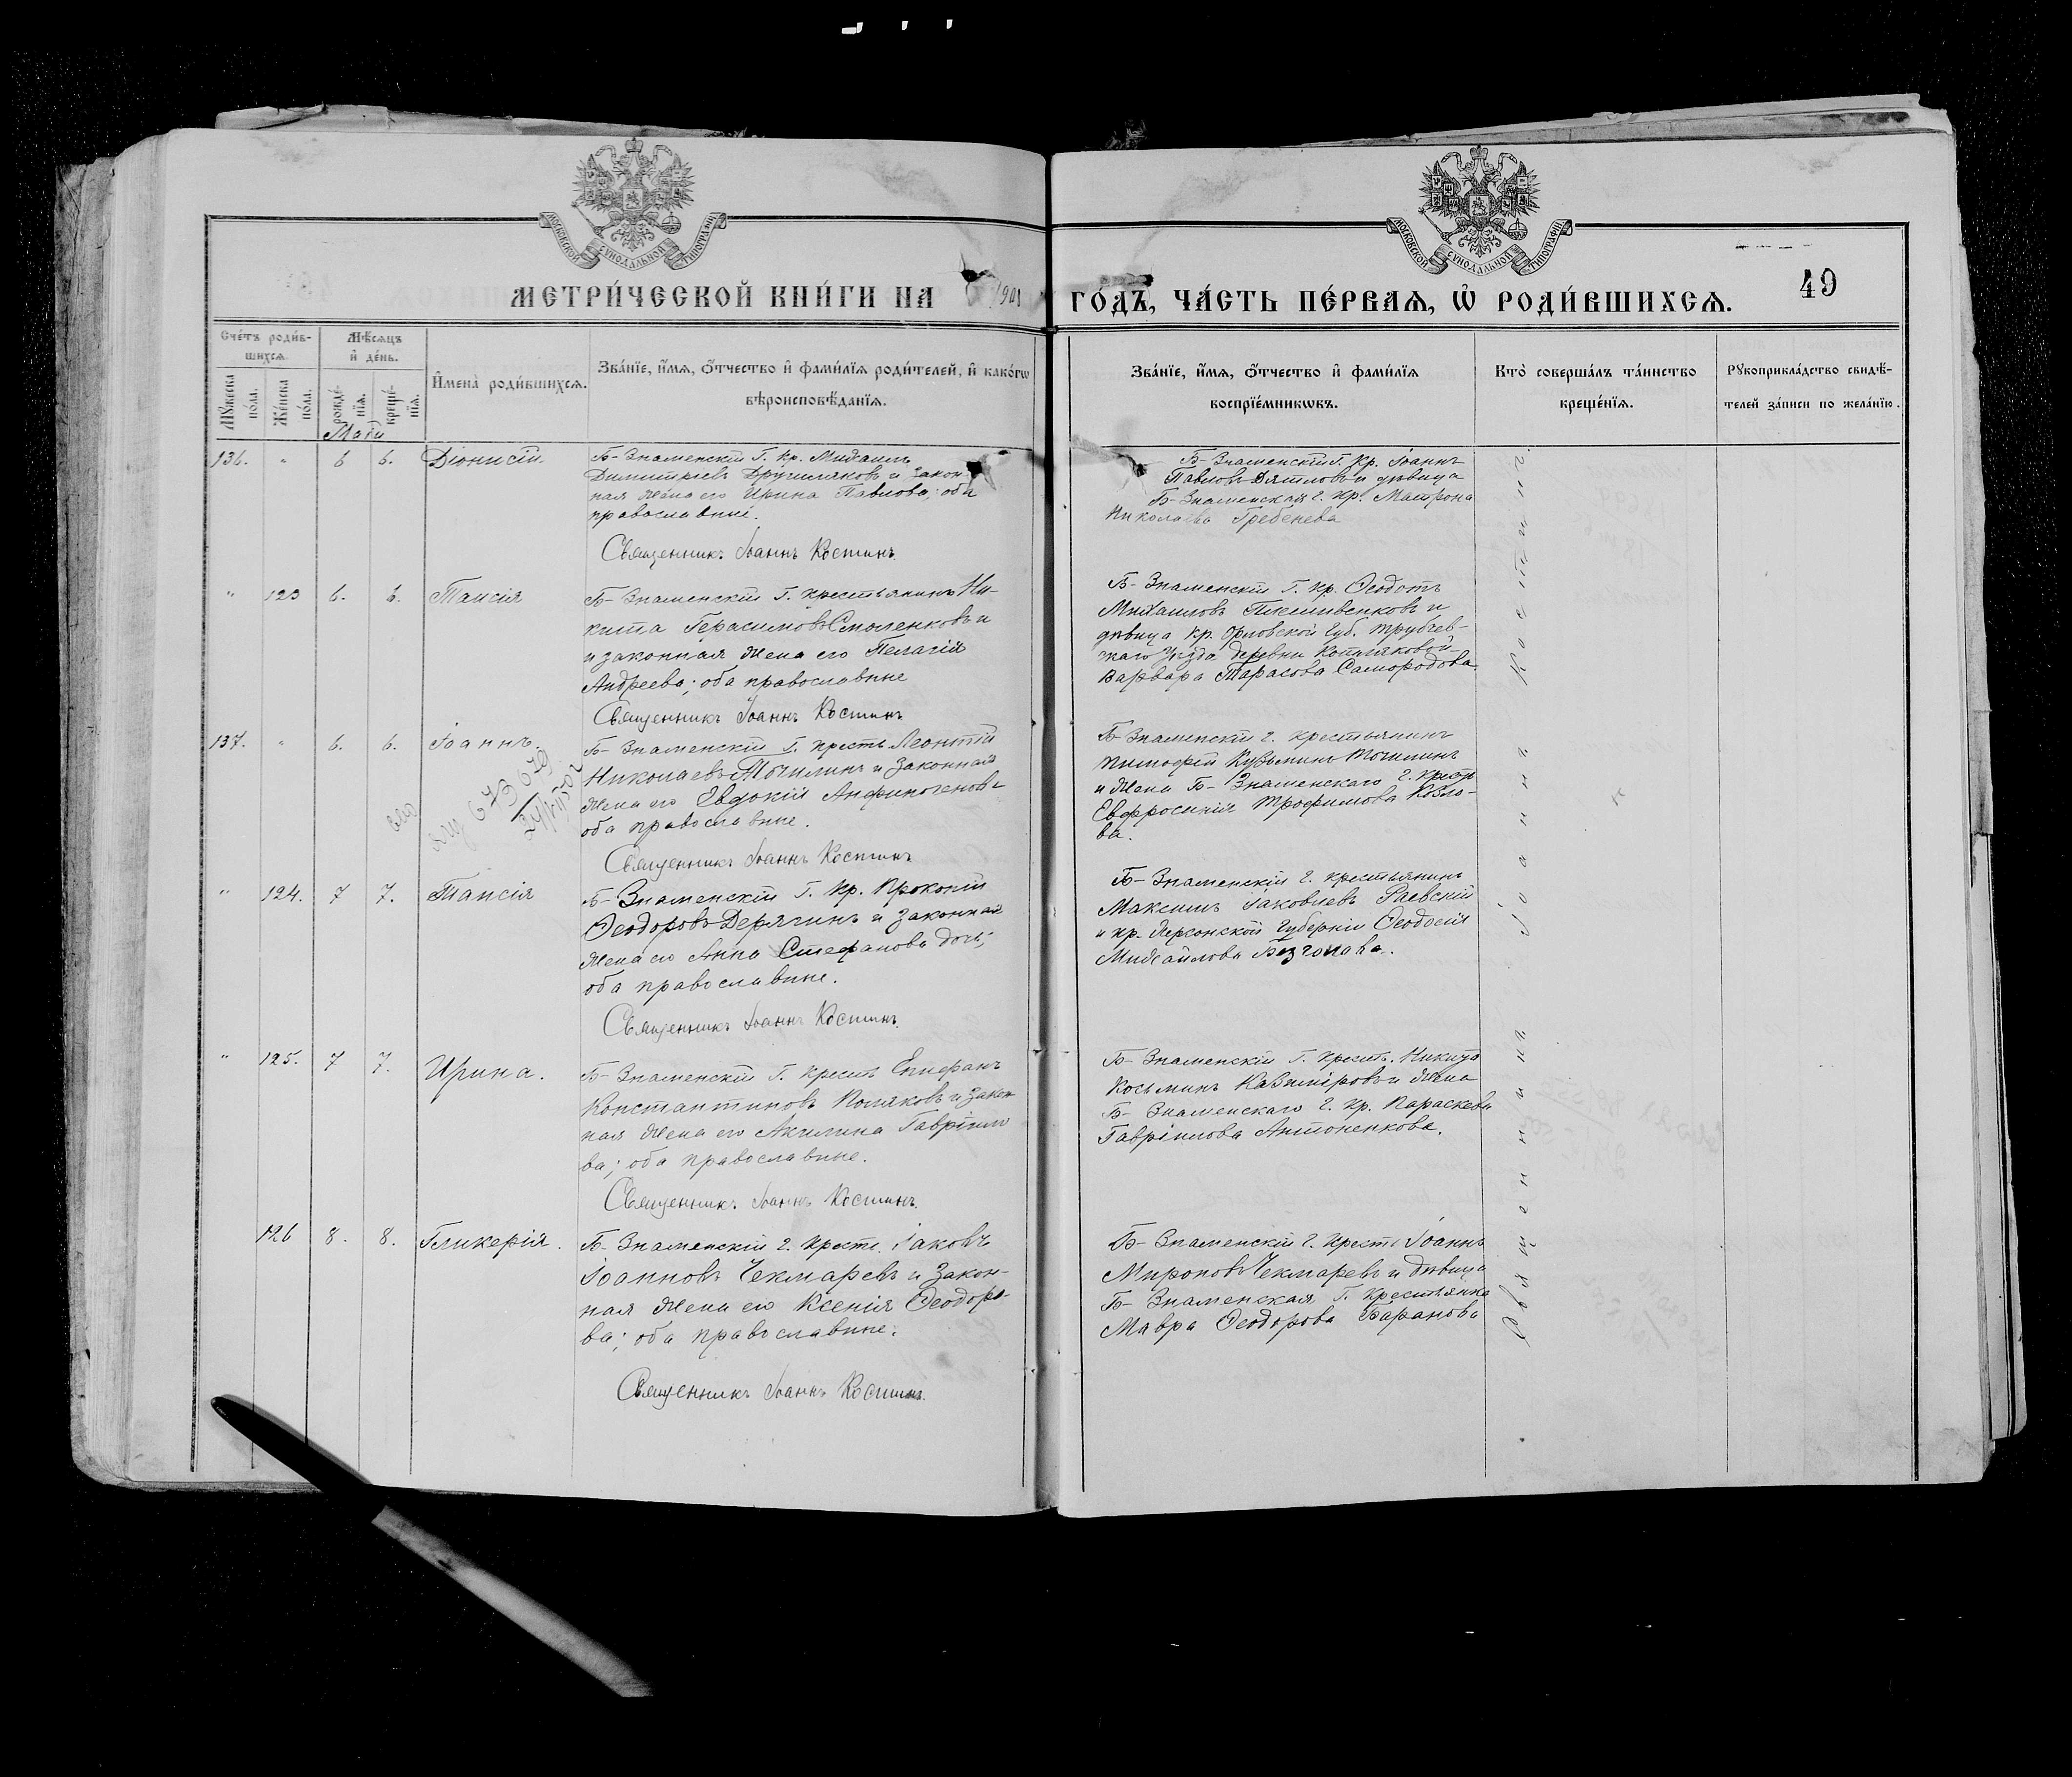 МОСКОВСКОЙ СѴНОДАЛЬНОЙ ТИПОГРАФІИ
МОСКОВСКОЙ СѴНОДАЛЬНОЙ ТИПОГРАФІИ
МЕТРИ́ЧЕСКОЙ КНИ́ГИ НА 1901
ГО́ДЪ, ЧА́СТЬ ПЕ́РВАЯ, Ѡ҆ РОДИ́ВШИХСЯ.
49
Сче́тъ роди́в-
шихся.
Мѣ́сяцъ
и҆ де́нь.
Мꙋ́жеска по́ла.
Же́нска по́ла.
рожде́-
нїя.
креще́-
нїя.
И҆мена̀ роди́вшихся.
Зва́нїе, и҆́мя, ѻ҆́тчество и҆ фами́лїя роди́телей, и҆ како́гѡ
вѣроисповѣ́данїя.
Зва́нїе, и҆́мя, ѻ҆́тчество и҆ фами́лїя
воспрїе́мникѡвъ.
Кто̀ соверша́лъ та́инство
креще́нїя.
Рꙋкоприкла́дство свидѣ́-
телей за́писи по жела́нїю.
Маій
136. " 6 6. Діонисій
Б-Знаменскій Г. Кр. Михаилъ
Димитріевъ и закон-
ная жена его Ирина Павлова; оба
православные.
Священникъ Іоаннъ Костинъ
Б-Знаменскій Г. Кр. Іоаннъ
Павловъ Дятловъ и дѣвица
Б-Знаменская г. кр. Матрона
Николаева Гребенева
" 123 6. 6. Таисія
Б-Знаменскій Г. крестьянинъ Ни-
кита Герасимовъ Смоленковъ и
и законная жена его Пелагія
Андреева; оба православные
Священникъ Іоаннъ Костинъ
Б-Знаменскій Г. Кр. Ѳеодотъ
Михаиловъ и
дѣвица кр. Орловской Губ. Трубчев-
скаго Уѣзда деревни
Варвара Тарасова Самородова.
137. " 6. 6. Іоаннъ.
Б-Знаменскій Г. крестъ. Леонтій
Николаевъ Мочилинъ и законная
жена его Евдокія Анфиногенова
оба православные.
Священникъ Іоаннъ Костинъ
Б-Знаменскій г. крестьянинъ
Тимофей Кузьминъ
и жена Б-Знаменскаго г. крест.
Евфросинія Трофимова Козло-
ва.
" 124. 7 7. Таисія
Б-Знаменскій Г. Кр. Прокопій
Ѳеодоровъ Дерягинъ и законная
жена его Анна Стефанова дочь;
оба православные.
Священникъ Іоаннъ Костинъ.
Б-Знаменскій г. крестьянинъ
Максимъ Іаковлевъ Раевскій
и кр. Херсонской Губерніи Ѳеодосія
Михайлова
" 125. 7 7. Ирина.
Б-Знаменскій Г. крест. Епифанъ
Константиновъ Поляковъ и закон-
ная жена его Акилина Гавріило-
ва; оба православные.
Священникъ Іоаннъ Костинъ.
Б-Знаменскій Г. крест. Никита
Косьминъ и жена
Б-Знаменскаго г. кр. Параскева
Гавріилова Антоненкова.
126 8. 8. Гликерія.
Б-Знаменскій г. крест. Іаковъ
Іоанновъ Чекмаревъ и закон-
ная жена его Ксенія Ѳеодоро-
ва; оба православные.
Священникъ Іоаннъ Костинъ.
Б-Знаменскій г. крест. Іоаннъ
Мироновъ Чекмаревъ и дѣвица
Б-Знаменская Г. крестьянка
Мавра Ѳеодорова Баранова
Священникъ Іоаннъ Костинъ